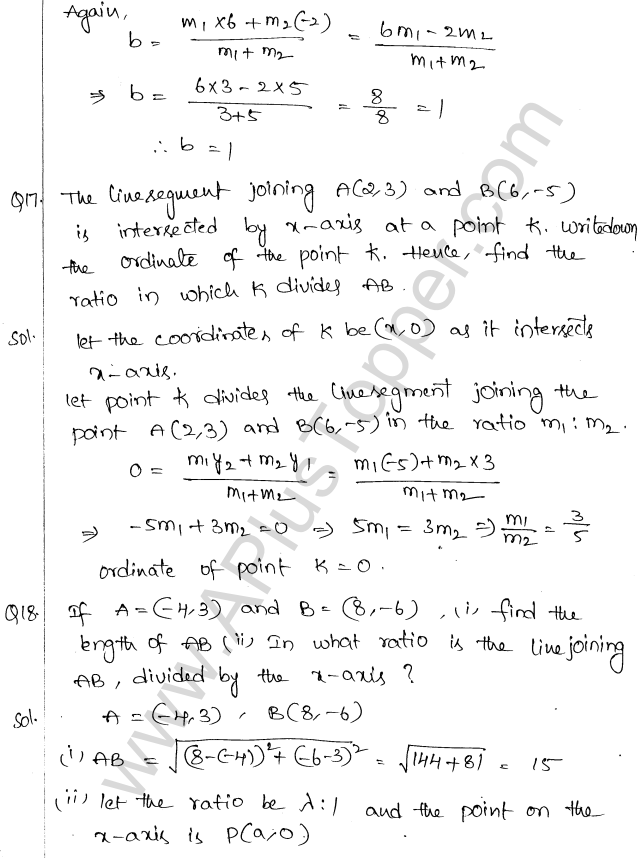 Again,
b = m₁×6 + m₂(-2) / m₁ + m₂ = 6m₁ - 2m₂ / m₁ + m₂
⇒ b = 6×3 - 2×5 / 3+5 = 8/8 = 1
∴ b = 1
Q17. The linesegment joining A(2,3) and B(6,-5)
is intersected by x-axis at a point K. writedown
the ordinate of the point K. Hence, find the
ratio in which K divides AB.
Sol. let the coordinates of K be (x,0) as it intersects
x-axis.
let point K divides the linesegment joining the
point A(2,3) and B(6,-5) in the ratio m₁:m₂.
0 = m₁y₂ + m₂y₁ / m₁+m₂ = m₁(-5)+m₂×3 / m₁+m₂
⇒ -5m₁+3m₂=0 ⇒ 5m₁ = 3m₂ ⇒ m₁/m₂ = 3/5
ordinate of point K=0.
Q18. If A=(-4,3) and B=(8,-6), (i) find the
length of AB (ii) In what ratio is the line joining
AB, divided by the x-axis?
Sol. A=(-4,3), B(8,-6)
(i) AB = √(8-(-4))²+(-6-3)² = √144+81 = 15
(ii) let the ratio be λ:1 and the point on the
x-axis is P(a,0)
www.APlusTopper.com